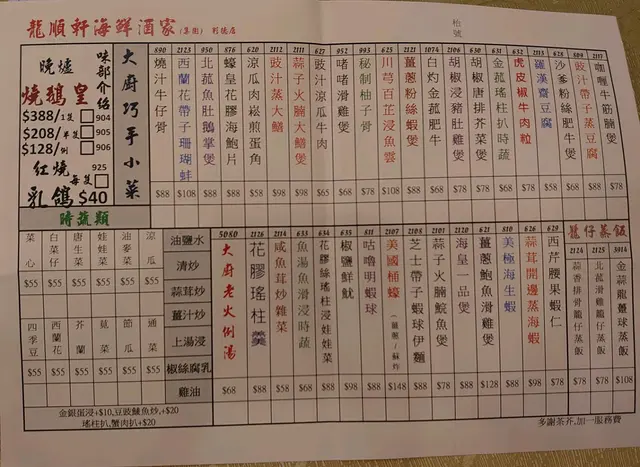 龍順軒海鮮酒家(集團) 利德店
枱號
晚爐燒鵝皇
味部介紹
$388/1隻 904
$208/半隻 905
$128/例 906
紅燒乳鴿 每隻 925
$40
大廚巧手小菜
890 燒汁牛仔骨 $88
2123 西蘭花帶子珊瑚蚌 $108
950 北菰魚肚鵝掌煲 $88
876 蠔皇花膠海鮑片 $88
620 涼瓜肉崧煎蛋角 $58
2112 豉汁蒸大鱔 $98
2111 蒜子火腩大鱔煲 $98
627 豉汁涼瓜牛肉 $65
952 啫啫滑雞煲 $68
993 秘制柚子骨 $78
625 川芎白芷浸魚雲 $108
2121 薑蔥粉絲蝦煲 $78
1074 白灼金菰肥牛 $68
2106 胡椒浸豬肚雞煲
630 胡椒唐排芥菜煲 $78
631 金菰瑤柱扒時蔬 $78
532 虎皮尖椒牛肉粒 $78
2113 羅漢齋豆腐 $58
628 沙爹粉絲肥牛煲 $78
609 豉汁帶子蒸豆腐 $88
2117 咖喱牛筋腩煲 $78
時蔬類
菜心 $55
白菜仔 $55
唐生菜 $55
娃娃菜 $55
油麥菜 $55
涼瓜 $55
四季豆 $55
西蘭花 $55
芥蘭 $55
莧菜 $55
節瓜 $55
通菜 $55
油鹽水
清炒
蒜茸炒
薑汁炒
上湯浸
椒絲腐乳
雞油
金銀蛋浸+$10,豆豉鯪魚炒,+$20
瑤柱扒,蟹肉扒+$20
5080 大廚老火例湯 $68
2126 花膠瑤柱羹 $88
2114 咸魚茸炒雜菜 $58
633 魚湯魚滑浸時蔬 $68
634 花膠絲瑤柱浸娃娃菜 $88
635 椒鹽鮮魷 $98
811 咕嚕明蝦球 $88
2107 美國桶蠔(薑蔥/酥炸) $148
2108 芝士帶子蝦球伊麵
2101 蒜子火腩鯇魚煲 $78
2120 海皇一品煲 $88
621 薑蔥鮑魚滑雞煲 $128
632 美極海生蝦 $88
626 蒜茸開邊蒸海蝦 $98
629 西芹腰果蝦仁 $78
籠仔蒸飯
2124 蒜香排骨籠仔蒸飯 $78
2125 北菰滑雞籠仔蒸飯 $78
3914 金蒜龍躉球蒸飯 $108
多謝茶芥,加一服務費